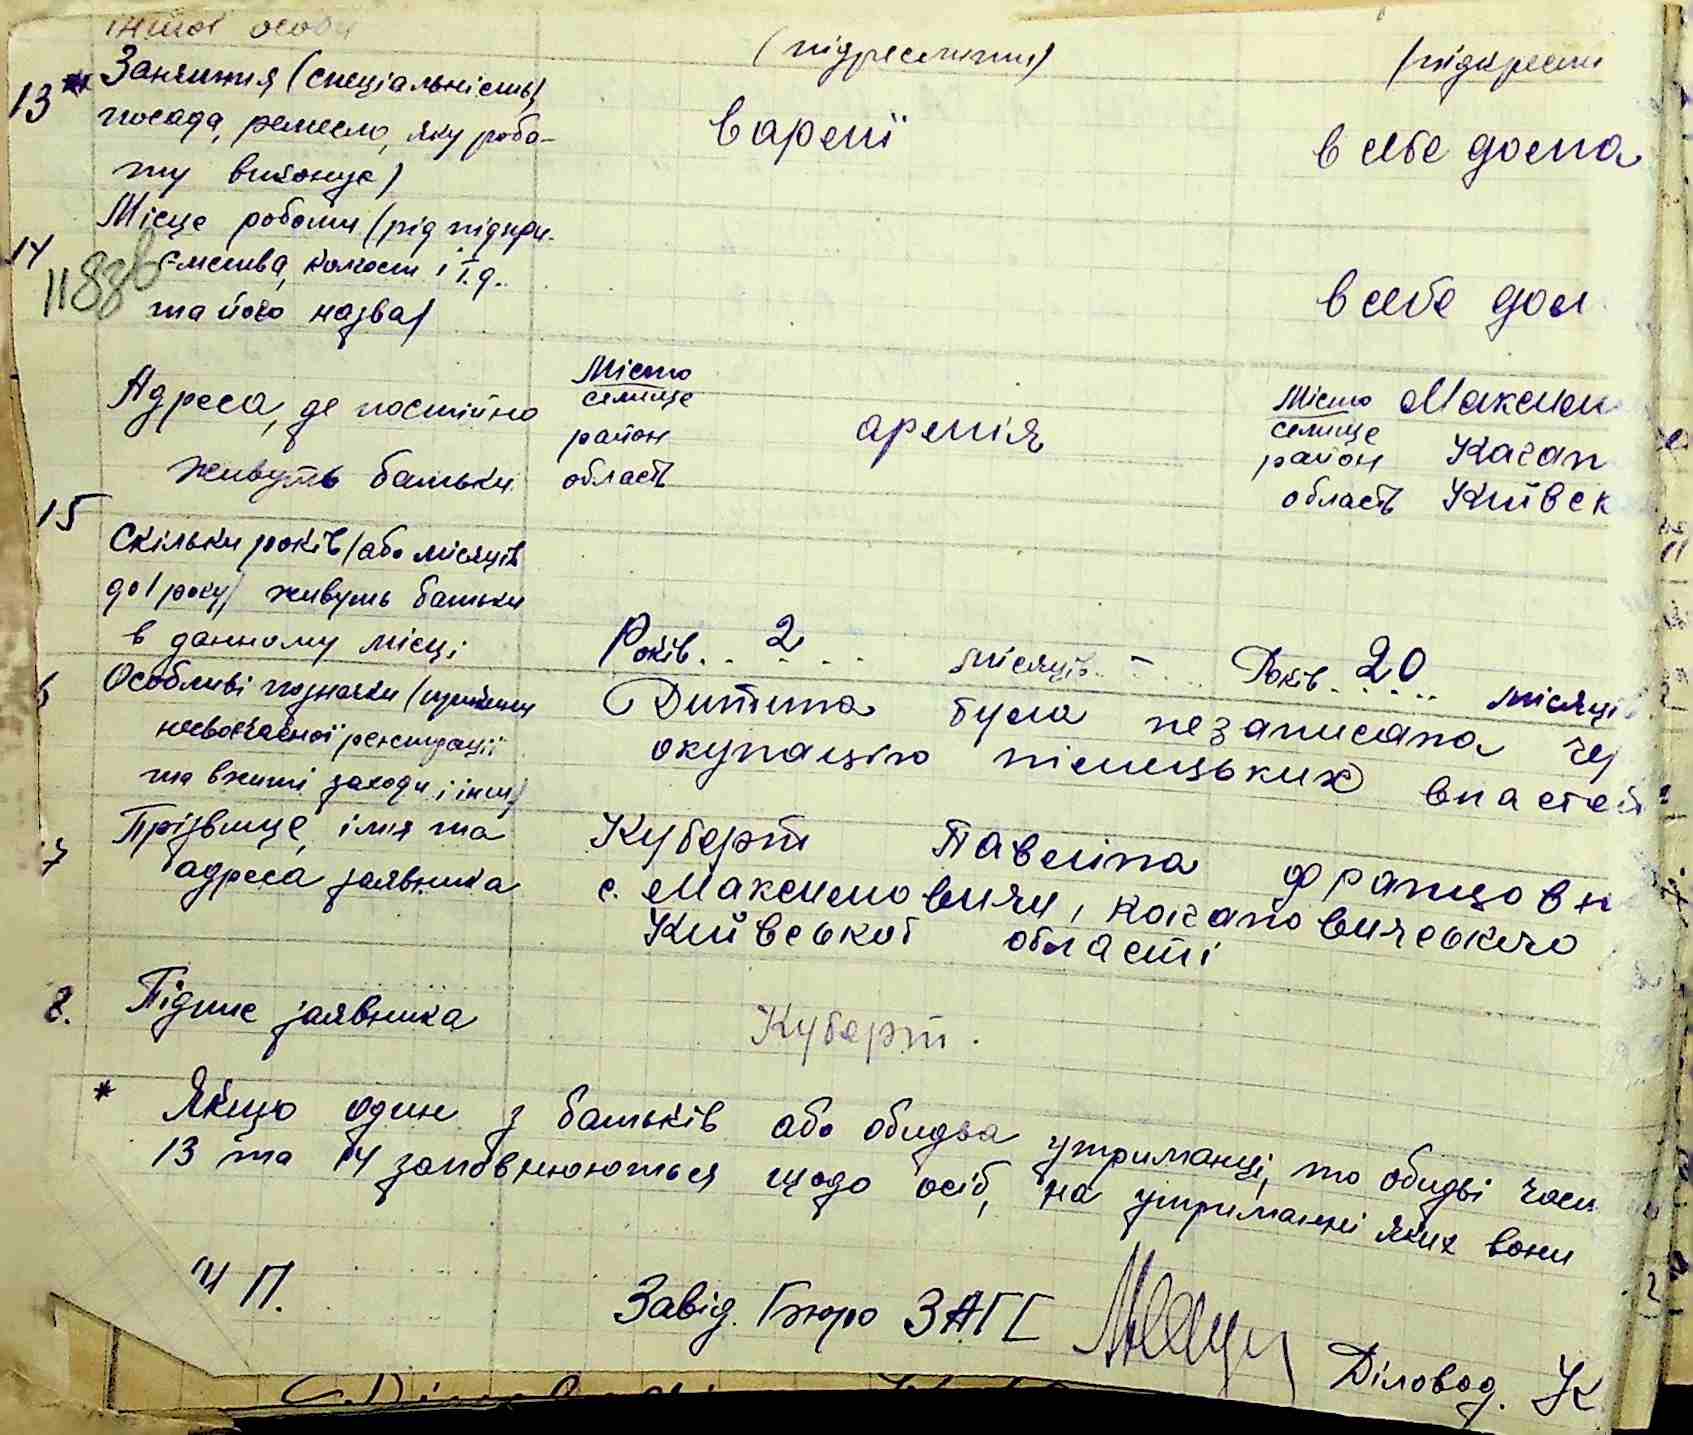 іншої особи
(підреслити) (підкресли
13* Заняття (спеціальність,
посада, ремесло, яку робо-
ту виконує)
в армії в себе дома
14 Місце роботи (рід підпри-
ємства, колгосп і т.д.
та його назва)
1188
в себе дом
Адреса, де постійно
живуть батьки
Місто
селище
район
область
армія
Місто Максимо
селище
район Каган
область Київськ
15 Скільки років (або місяців
до 1 року) живуть батьки
в данному місці
Років.. 2 .... місяців. - ... Років. 20 ... місяців
6 Особливі позначки (причини
несвоєчасної реєстрації
та вжиті заходи і інш)
Дитина була незаписана чер
окупацію німецьких властей
7 Прізвище, імя та
адреса заявника
Куберт Павеліна Францовн
с. Максимовичи, Кагановичського
Київської області
8. Підпис заявника
Куберт.
* Якщо один з батьків або обидва утриманці, то обидві част
13 та 14 заповнюються щодо осіб, на утриманні яких вони
М П.
Завід. Бюро ЗАГС
Діловод. К